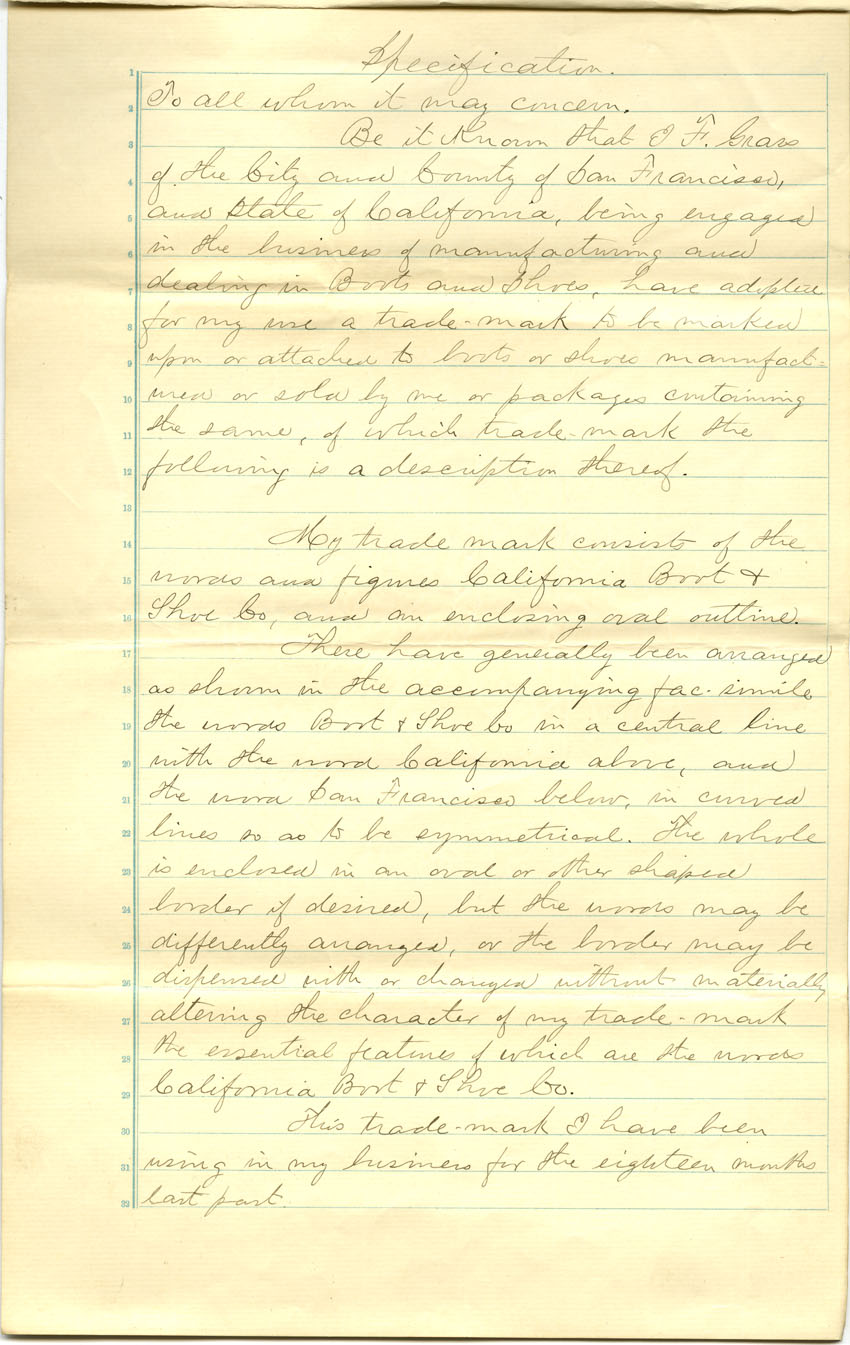 Specification.
1
2 To all whom it may concern.
3 Be it Known that I F. Grass
4 of the City and County of San Francisco,
5 and State of California, being engaged
6 in the business of manufacturing and
7 dealing in Boots and Shoes, have adopted
8 for my use a trade-mark to be marked
9 upon or attached to boots or shoes manufact-
10 ured or sold by me or packages containing
11 the same, of which trade-mark the
12 following is a description thereof.
13
14 My trade mark consists of the
15 words and figures California Boot &
16 Shoe Co, and an enclosing oval outline.
17 These have generally been arranged
18 as shown in the accompanying fac-simile
19 the words Boot & Shoe Co in a central line
20 with the word California above, and
21 the word San Francisco below, in curved
22 lines so as to be symmetrical. The whole
23 is enclosed in an oval or other shaped
24 border if desired, but the words may be
25 differently arranged, or the border may be
26 dispensed with or changed without materially
27 altering the character of my trade-mark
28 the essential features of which are the words
29 California Boot & Shoe Co.
30 This trade-mark I have been
31 using in my business for the eighteen months
32 last past.